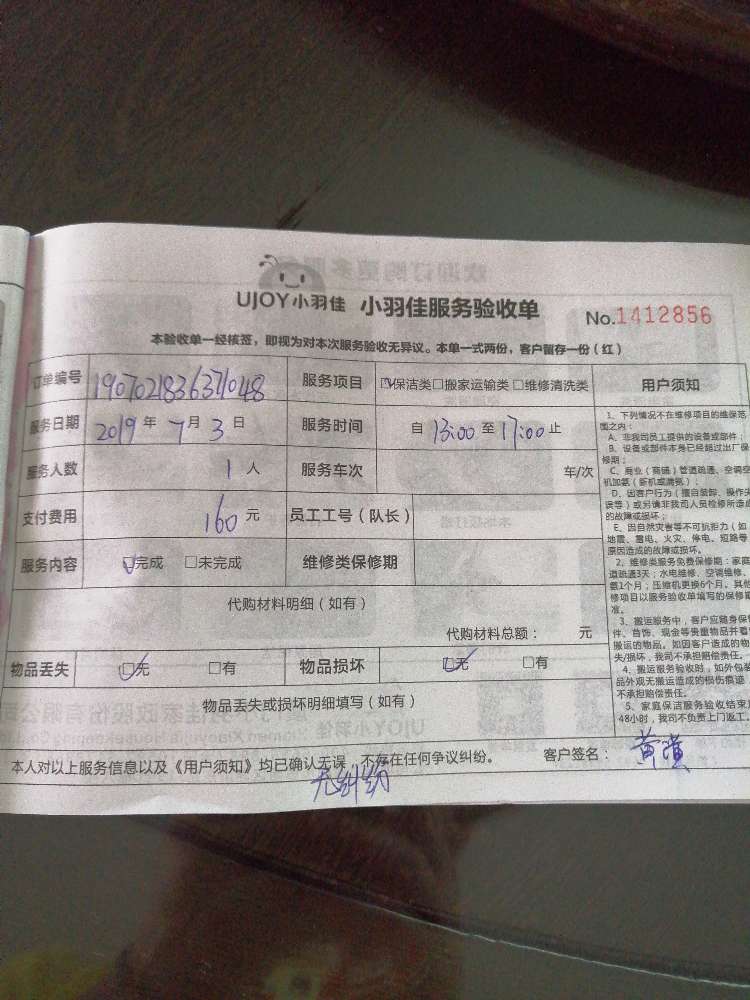 UJOY小羽佳 小羽佳服务验收单 No.1412856
本验收单一经核签，即视为对本次服务验收无异议。本单一式两份，客户留存一份（红）
订单编号 1907021836371048 服务项目 ☑保洁类□搬家运输类□维修清洗类 用户须知
服务日期 2019 年 7 月 3 日 服务时间 自 13:00 至 17:00 止
服务人数 1 人 服务车次 车/次
支付费用 160 元 员工工号（队长）
服务内容 ☑完成 □未完成 维修类保修期
代购材料明细（如有）
代购材料总额： 元
物品丢失 ☑无 □有 物品损坏 ☑无 □有
物品丢失或损坏明细填写（如有）
本人对以上服务信息以及《用户须知》均已确认无误，不存在任何争议纠纷。 客户签名：
无纠纷
1、下列情况不在维修项目的维保范
围之内：
A、非我司员工提供的设备或部件；
B、设备或部件本身已经超过出厂保
修期；
C、商业（商铺）管道疏通、空调空
机加氨（新机或满氨）；
D、因客户行为（擅自装卸、操作失
误等）或另请非我司人员检修所造成
的故障或损坏；
E、因自然灾害等不可抗拒力（如
地震、雷电、火灾、停电、短路等
原因造成的故障或损坏。
2、维修类服务免费保修期：家庭
道疏通3天；水电维修、空调维修、
氨1个月；压缩机更换6个月。其他
修项目以服务验收单填写的保修期
准。
3、搬运服务中，客户应随身保
件、首饰、现金等贵重物品并看
搬运的物品。如因客户造成的物
失/损坏，我司不承担赔偿责任。
4、搬运服务验收时，如外包装
品外观无搬运造成的损伤痕迹
不承担赔偿责任。
5、家庭保洁服务验收结束后
48小时，我司不负责上门返工。